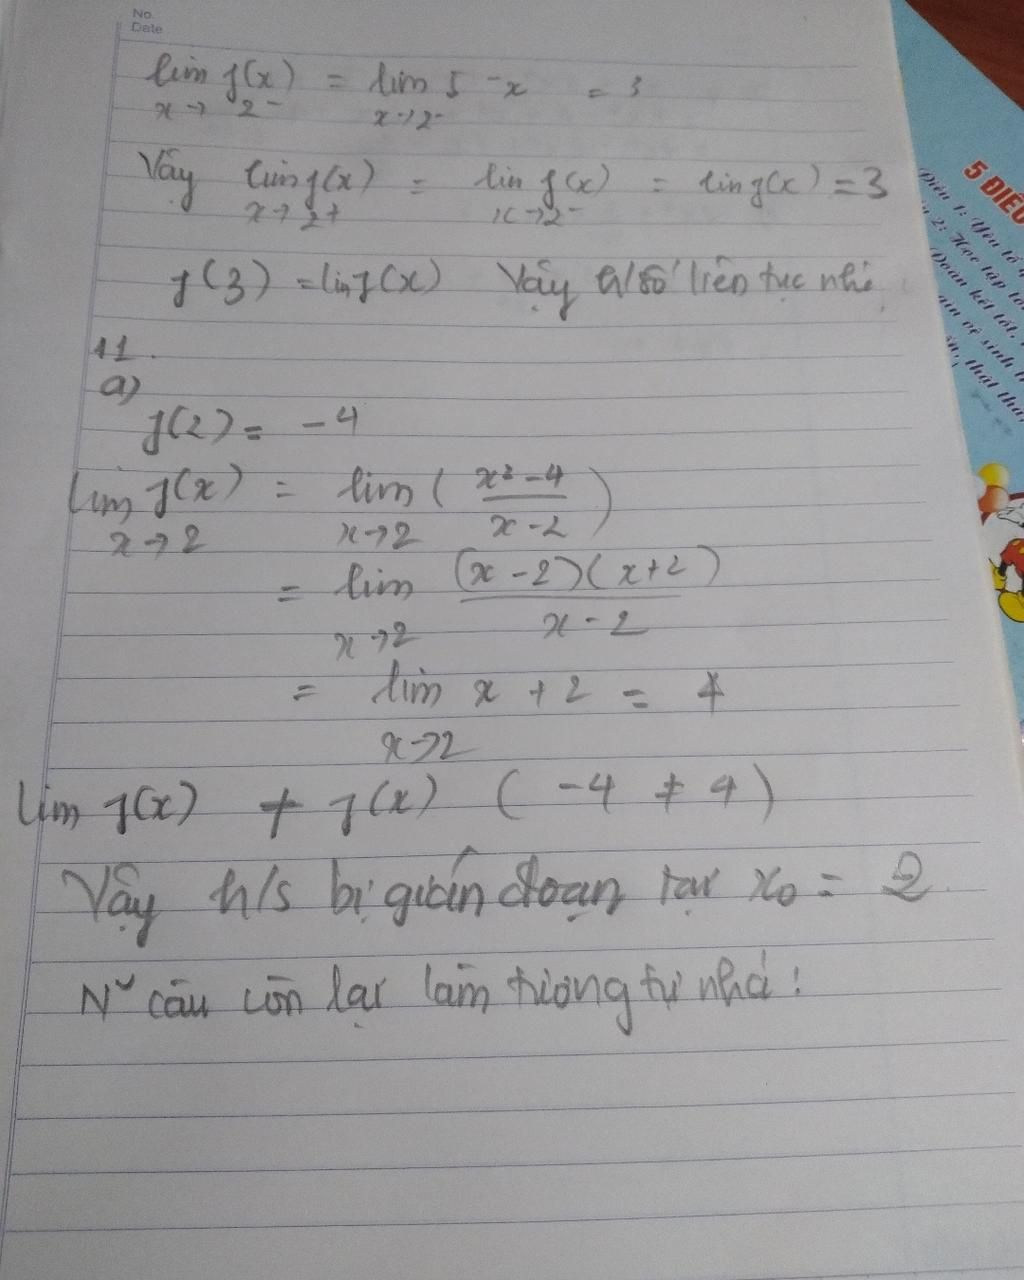 No.
Date
lim f(x) = lim 5 - x = 3
x→2⁻ x→2⁻
Vậy lim f(x) = lim f(x) = lim f(x) = 3
x→2+ x→2⁻
f(3) = lim f(x) Vậy h/số liên tục nhé
11.
a)
f(2) = -4
lim f(x) = lim ( x² - 4 / x - 2 )
x→2 x→2
= lim (x - 2)(x + 2) / x - 2
x→2
= lim x + 2 = 4
x→2
lim f(x) ≠ f(x) ( -4 ≠ 4 )
Vậy h/s bị gián đoạn tại x₀ = 2.
N~ câu còn lại làm tương tự nhá!
5 ĐIỀU
Điều 1: Yêu tổ
2: Học tập tốt
Đoàn kết tốt,
gìn vệ sinh
thật thà